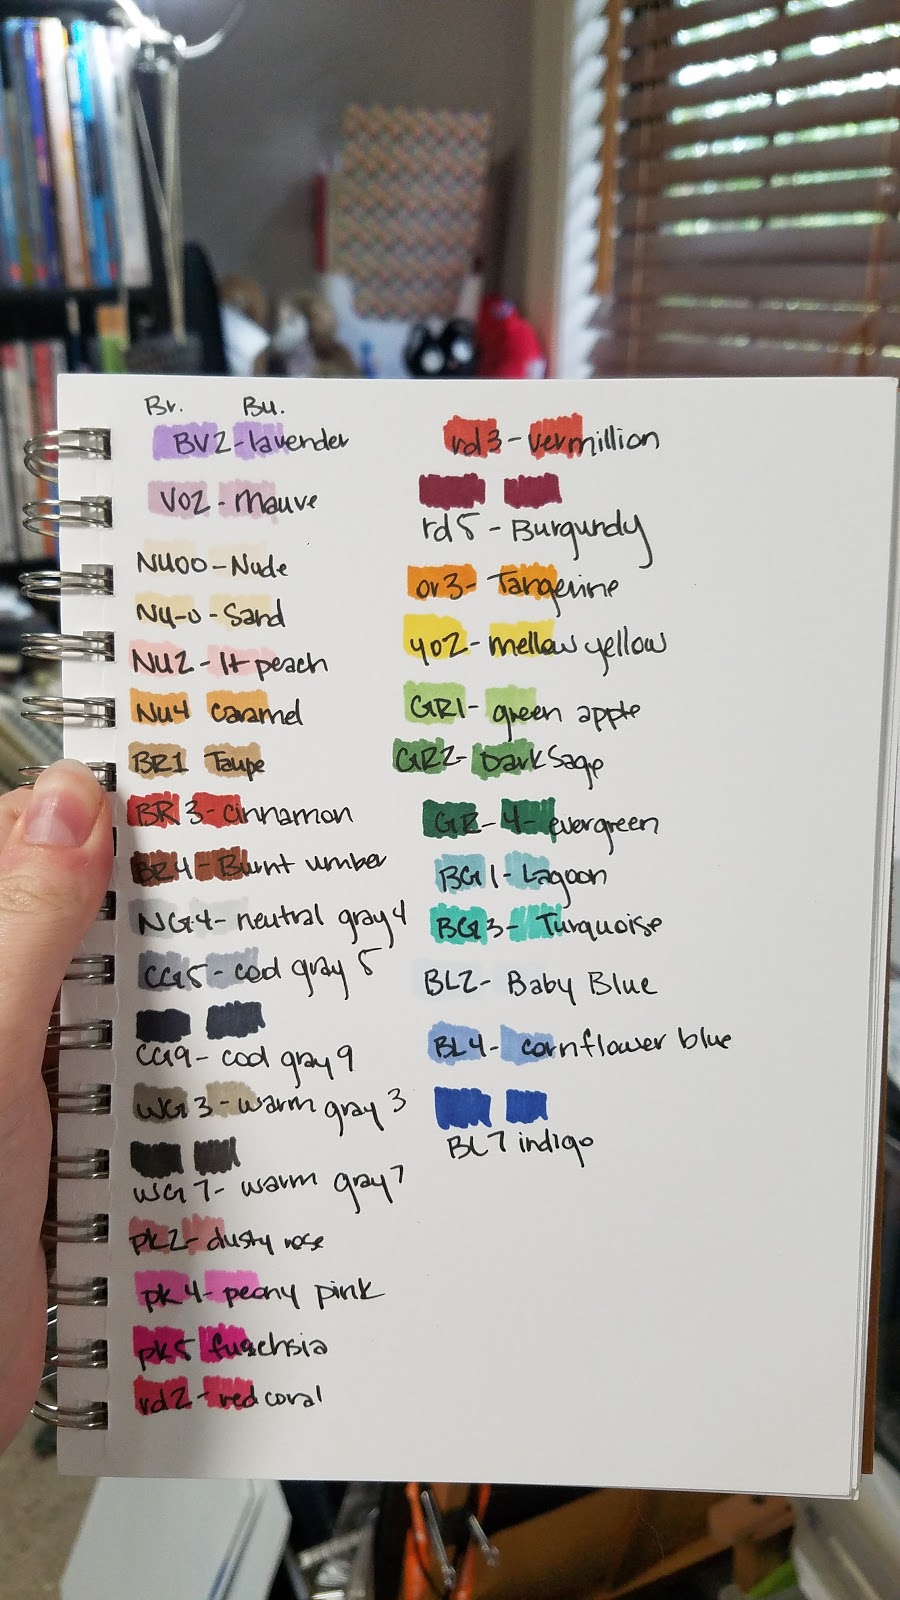 Br. Bu.
BV2-lavender
V02 - Mauve
NU00-Nude
NU-0 -Sand
NU2 - lt peach
NU4 caramel
BR1 Taupe
BR3-cinnamon
BR4-Burnt umber
NG4- neutral gray 4
CG5-cool gray 5
CG9- cool gray 9
WG3-warm gray 3
WG7- warm gray 7
pk2-dusty rose
pk4-peony pink
pk5 fuschsia
rd2-red coral
rd3-vermillion
rd5 - Burgundy
or3- Tangerine
yo2- mellow yellow
GR1- green apple
GR2- Dark Sage
GR-4-evergreen
BG1-Lagoon
BG3- Turquoise
BL2- Baby Blue
BL4- cornflower blue
BL7 indigo